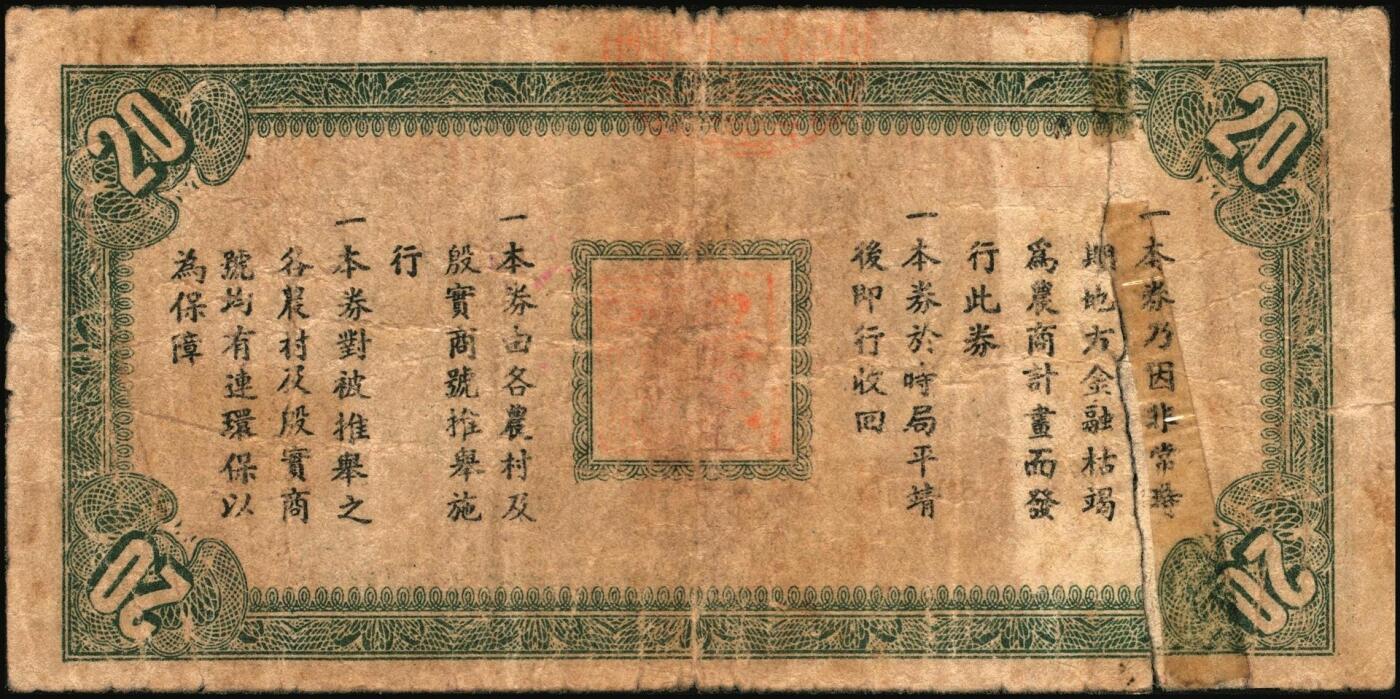 20
20
一本券乃因非常時
期地方金融枯竭
爲農商計畫而發
行此券
一本券於時局平靖
後即行收回
一本券由各農村及
殷實商號推舉施
行
一本券對被推舉之
各農村及殷實商
號均有連環保以
為保障
20
20